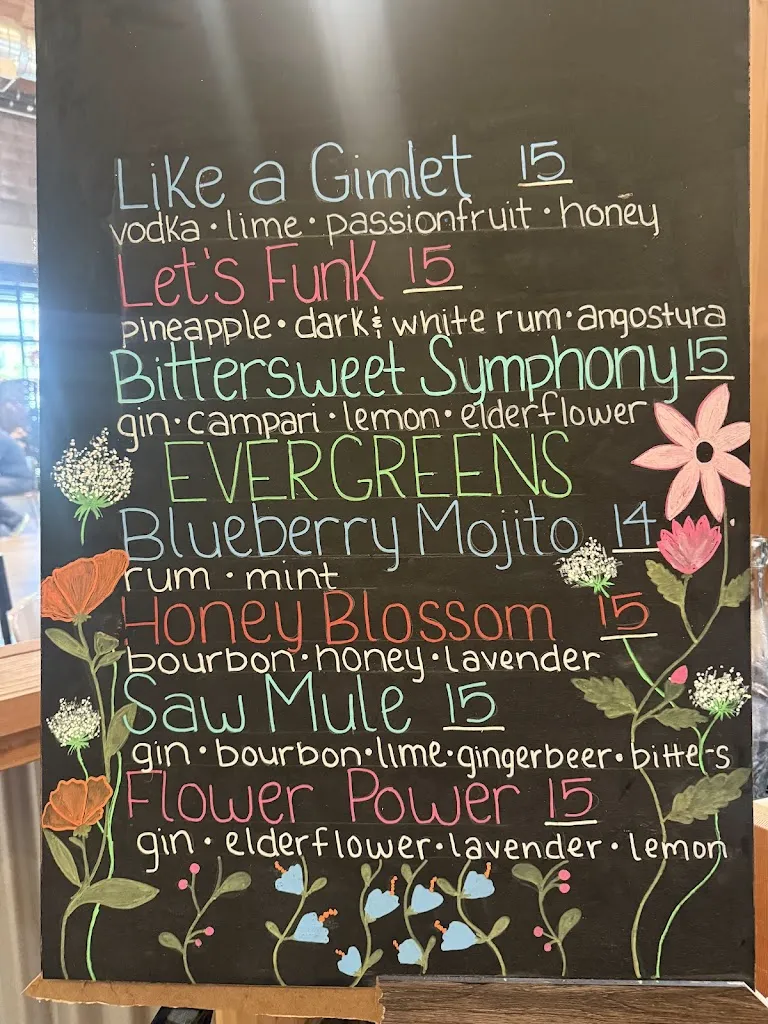 Like a Gimlet 15
vodka · lime · passionfruit · honey
Let's Funk 15
pineapple · dark & white rum · angostura
Bittersweet Symphony 15
gin · campari · lemon · elderflower
EVERGREENS
Blueberry Mojito 14
rum · mint
Honey Blossom 15
bourbon · honey · lavender
Saw Mule 15
gin · bourbon · lime · gingerbeer · bitters
Flower Power 15
gin · elderflower · lavender · lemon